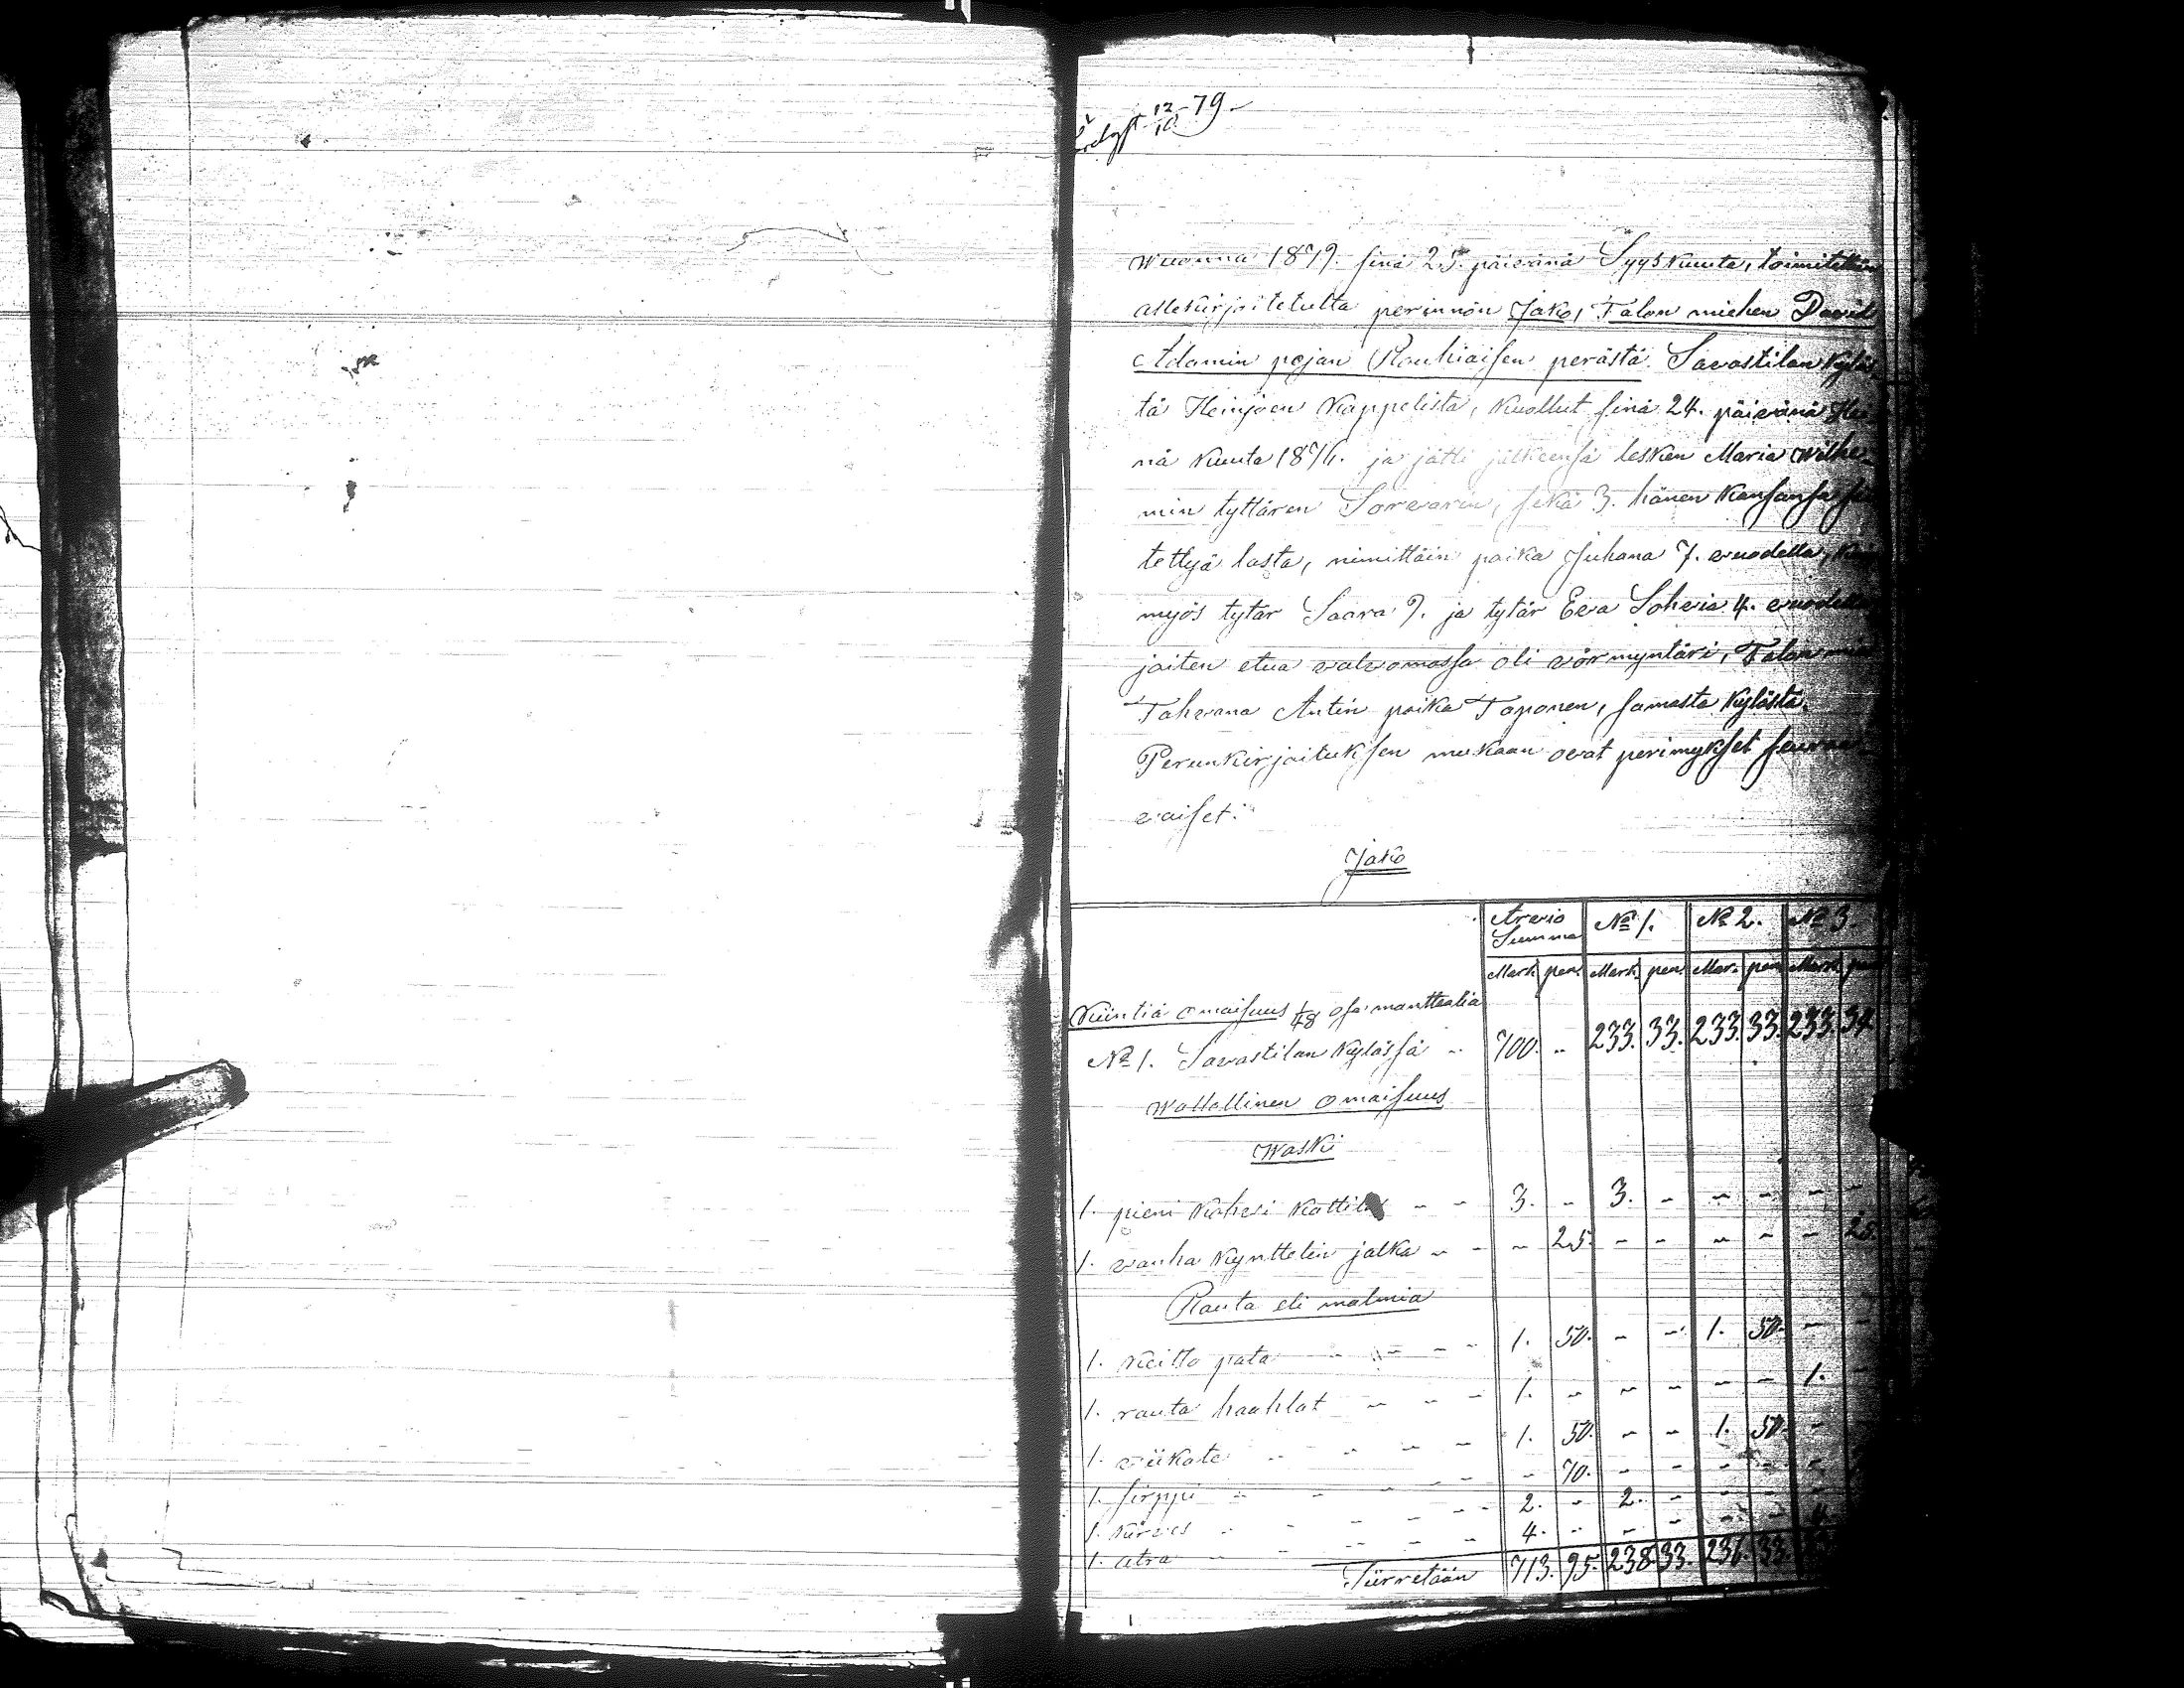 12/10 79.
Wuonna 1879. sinä 25. päivänä Syyskuuta, toimitettiin
allekirjoitetulta perinnön Jako, Talon miehen David
Adamin pojan Rauhiaisen perästä. Savastilan Kyläs
tä Heinjoen Kappelista, kuollut sinä 24. päivänä Hei
nä kuuta 1876. ja jätti jälkeensä lesken Maria Wilhe-
min tyttären Sorvarin, sekä 3. hänen kansansa sii
tettyä lasta, nimittäin poika Juhana 7. vuodella, kuin
myös tytär Saara 9. ja tytär Eeva Sohvia 4. vuodella
joiten etua valvomassa oli vörmyntäri, Talon mies
Tahvana Antin poika Toponen, samasta Kylästä.
Perunkirjoituksen mukaan ovat perimykset seuraa-
vaiset:
Jako
Arvio Summa No 1. No 2. No 3.
Mark. pen. Mark. pen. Mar. pen. Mark. pen
Kiintiä omaisuus 1/48 osa manttaalia
No 1. Savastilan Kylässä .. 700. .. 233. 33. 233. 33. 233. 34.
Wallallinen omaisuus
Waski
1. pieni kahvi kattila - - 3. - 3. - - - - -
1. vanha kynttelin jalka - - - 25. - - - - - 25.
Rauta eli malmia
1. keitto pata - - - - 1. 50. - - 1. 50. - -
1. rauta haahlat - - - 1. - - - - - 1. -
1. viikate - - - - 1. 50. - - 1. 50. -
1. sirppi - - - - - 70. - - - - -
1. kirves - - - - - 2. - 2. - - - -
1. atra - - - - - 4. - - - - - 4.
Siirretään 713. 95. 238. 33. 236. 33.